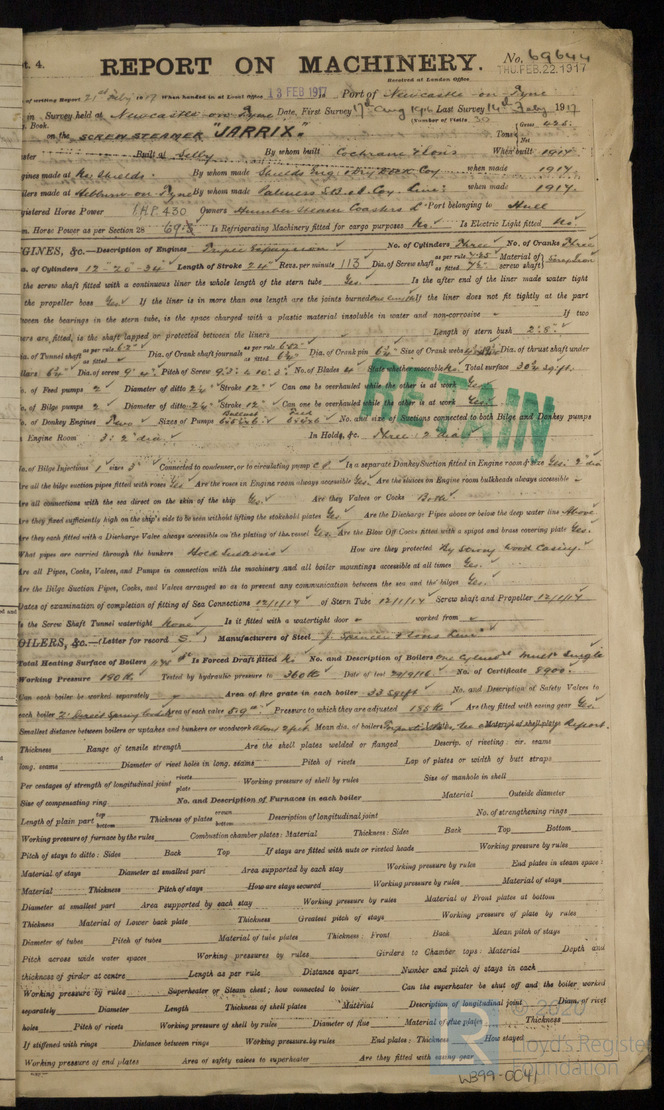 t. 4.
REPORT ON MACHINERY. No. 69644
Received at London Office THU. FEB. 22. 1917
of writing Report 21st Feby 1917 When handed in at Local Office 13 FEB 1917 Port of Newcastle-on-Tyne
in Survey held at Newcastle-on-Tyne Date, First Survey 17th Aug 1916 Last Survey 14th Feby 1917
Book. (Number of Visits 30
on the SCREW STEAMER "JARRIX." Tons Gross 425. Net
ster Built at Selby By whom built Cochrane & Sons When built 1917
gines made at No. Shields. By whom made Shields Eng. & Dry Dock Coy. when made 1917.
ilers made at Hebburn-on-Tyne By whom made Palmers S.B. & I. Coy. Limd. when made 1917.
gistered Horse Power I.H.P. 430 Owners Humber Steam Coasters Ld Port belonging to Hull
m. Horse Power as per Section 28 69.3 Is Refrigerating Machinery fitted for cargo purposes No. Is Electric Light fitted No.
GINES, &c.—Description of Engines Triple Expansion No. of Cylinders Three No. of Cranks Three
a. of Cylinders 12"-20"-34" Length of Stroke 24" Revs. per minute 113 Dia. of Screw shaft as per rule 7.25 as fitted Material of screw shaft
the screw shaft fitted with a continuous liner the whole length of the stern tube Yes. Is the after end of the liner made water tight
the propeller boss Yes If the liner is in more than one length are the joints burned one length If the liner does not fit tightly at the part
ween the bearings in the stern tube, is the space charged with a plastic material insoluble in water and non-corrosive - If two
ers are fitted, is the shaft lapped or protected between the liners Length of stern bush 2'.8".
ia. of Tunnel shaft as per rule as fitted Dia. of Crank shaft journals as per rule as fitted Dia. of Crank pin 6½" Size of Crank webs Dia. of thrust shaft under
llars 6½" Dia. of screw 9'.4" Pitch of Screw 9'.3" & 10'.3" No. of Blades 4 State whether moveable No. Total surface 30½ sq. ft.
o. of Feed pumps 2 Diameter of ditto 2½" Stroke 12" Can one be overhauled while the other is at work Yes.
o. of Bilge pumps 2 Diameter of ditto 2½" Stroke 12" Can one be overhauled while the other is at work Yes.
o. of Donkey Engines Two Sizes of Pumps Ballast Feed No. and size of Suctions connected to both Bilge and Donkey pumps
Engine Room 3: 2" dia. In Holds, &c. Three: 2" dia
RETAIN
o. of Bilge Injections 1 sizes 3" Connected to condenser, or to circulating pump C.P. Is a separate Donkey Suction fitted in Engine room & size Yes: 2" dia
re all the bilge suction pipes fitted with roses Yes Are the roses in Engine room always accessible Yes. Are the sluices on Engine room bulkheads always accessible -
re all connections with the sea direct on the skin of the ship Yes. Are they Valves or Cocks Both
re they fixed sufficiently high on the ship's side to be seen without lifting the stokehold plates Yes Are the Discharge Pipes above or below the deep water line Above
re they each fitted with a Discharge Valve always accessible on the plating of the vessel Yes. Are the Blow Off Cocks fitted with a spigot and brass covering plate Yes.
What pipes are carried through the bunkers Hold Suctions How are they protected By strong Wood Casing.
re all Pipes, Cocks, Valves, and Pumps in connection with the machinery and all boiler mountings accessible at all times Yes.
re the Bilge Suction Pipes, Cocks, and Valves arranged so as to prevent any communication between the sea and the bilges Yes.
Dates of examination of completion of fitting of Sea Connections 12/1/17 of Stern Tube 12/1/17 Screw shaft and Propeller 12/1/17
s the Screw Shaft Tunnel watertight None Is it fitted with a watertight door - worked from -
OILERS, &c.—(Letter for record S.) Manufacturers of Steel J. Spencer & Sons Limd
Total Heating Surface of Boilers Is Forced Draft fitted No No. and Description of Boilers One Cylind. Mult. Single
Working Pressure 180 lb. Tested by hydraulic pressure to 360 lb Date of test No. of Certificate 8900.
Can each boiler be worked separately Area of fire grate in each boiler 33 sq ft No. and Description of Safety Valves to
each boiler 2: Direct Spring Loaded Area of each valve 5.9" Pressure to which they are adjusted 185 lb Are they fitted with easing gear Yes.
Smallest distance between boilers or uptakes and bunkers or woodwork About 2 feet Mean dia. of boilers Length Material of shell plates Report.
Thickness Range of tensile strength Are the shell plates welded or flanged Descrip. of riveting: cir. seams
long. seams Diameter of rivet holes in long. seams Pitch of rivets Lap of plates or width of butt straps
Per centages of strength of longitudinal joint rivets plate Working pressure of shell by rules Size of manhole in shell
Size of compensating ring No. and Description of Furnaces in each boiler Material Outside diameter
Length of plain part top bottom Thickness of plates crown bottom Description of longitudinal joint No. of strengthening rings
Working pressure of furnace by the rules Combustion chamber plates: Material Thickness: Sides Back Top Bottom
Pitch of stays to ditto: Sides Back Top If stays are fitted with nuts or riveted heads Working pressure by rules
Material of stays Diameter at smallest part Area supported by each stay Working pressure by rules End plates in steam space:
Material Thickness Pitch of stays How are stays secured Working pressure by rules Material of stays
Diameter at smallest part Area supported by each stay Working pressure by rules Material of Front plates at bottom
Thickness Material of Lower back plate Thickness Greatest pitch of stays Working pressure of plate by rules
Diameter of tubes Pitch of tubes Material of tube plates Thickness: Front Back Mean pitch of stays
Pitch across wide water spaces Working pressures by rules Girders to Chamber tops: Material Depth and
thickness of girder at centre Length as per rule Distance apart Number and pitch of stays in each
Working pressure by rules Superheater or Steam chest; how connected to boiler Can the superheater be shut off and the boiler worked
separately Diameter Length Thickness of shell plates Material Description of longitudinal joint Diam. of rivet
holes Pitch of rivets Working pressure of shell by rules Diameter of flue Material of flue plates Thickness
If stiffened with rings Distance between rings Working pressure by rules End plates: Thickness How stayed
Working pressure of end plates Area of safety valves to superheater Are they fitted with easing gear
© 2020
Lloyd's Register
Foundation
W399-0041